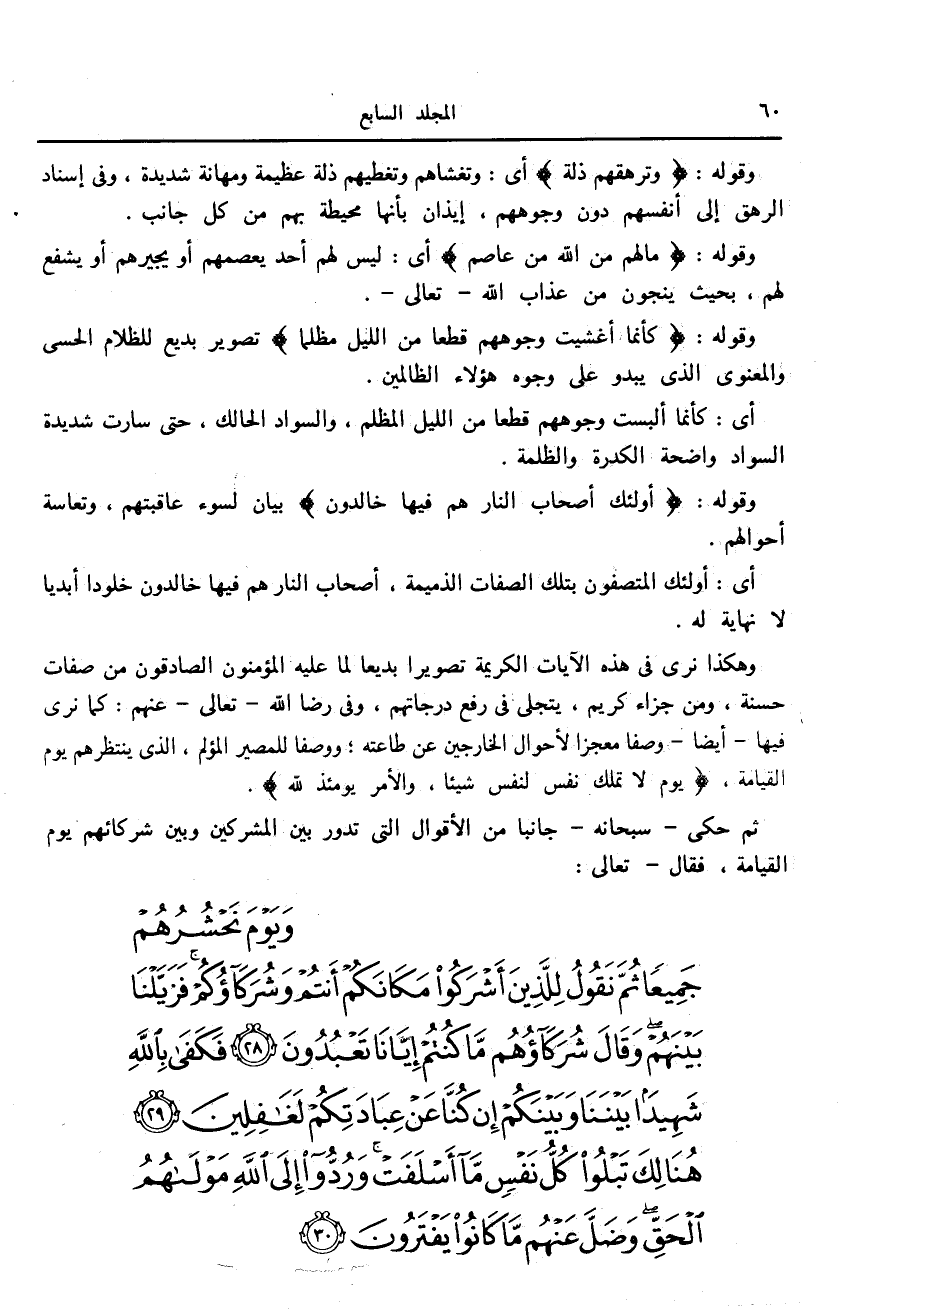 ٦٠ المجلد السابع
وقوله : ﴿ وترهقهم ذلة ﴾ أى : وتغشاهم وتغطيهم ذلة عظيمة ومهانة شديدة ، وفى إسناد
الرهق إلى أنفسهم دون وجوههم ، إيذان بأنها محيطة بهم من كل جانب .
وقوله : ﴿ مالهم من الله من عاصم ﴾ أى : ليس لهم أحد يعصمهم أو يجيرهم أو يشفع
لهم ، بحيث ينجون من عذاب الله – تعالى – .
وقوله : ﴿ كأنما أغشيت وجوههم قطعا من الليل مظلما ﴾ تصوير بديع للظلام الحسى
والمعنوى الذى يبدو على وجوه هؤلاء الظالمين .
أى : كأنما ألبست وجوههم قطعا من الليل المظلم ، والسواد الحالك ، حتى سارت شديدة
السواد واضحة الكدرة والظلمة .
وقوله : ﴿ أولئك أصحاب النار هم فيها خالدون ﴾ بيان لسوء عاقبتهم ، وتعاسة
أحوالهم .
أى : أولئك المتصفون بتلك الصفات الذميمة ، أصحاب النار هم فيها خالدون خلودا أبديا
لا نهاية له .
وهكذا نرى فى هذه الآيات الكريمة تصويرا بديعا لما عليه المؤمنون الصادقون من صفات
حسنة ، ومن جزاء كريم ، يتجلى فى رفع درجاتهم ، وفى رضا الله – تعالى – عنهم : كما نرى
فيها – أيضا – وصفا معجزا لأحوال الخارجين عن طاعته ؛ ووصفا للمصير المؤلم ، الذى ينتظرهم يوم
القيامة ، ﴿ يوم لا تملك نفس لنفس شيئا ، والأمر يومئذ لله ﴾ .
ثم حكى – سبحانه – جانبا من الأقوال التى تدور بين المشركين وبين شركائهم يوم
القيامة ، فقال – تعالى :
وَيَوْمَ نَحْشُرُهُمْ
جَمِيعًا ثُمَّ نَقُولُ لِلَّذِينَ أَشْرَكُوا۟ مَكَانَكُمْ أَنتُمْ وَشُرَكَآؤُكُمْ ۚ فَزَيَّلْنَا
بَيْنَهُمْ ۖ وَقَالَ شُرَكَآؤُهُم مَّا كُنتُمْ إِيَّانَا تَعْبُدُونَ ٢٨ فَكَفَىٰ بِٱللَّهِ
شَهِيدًۢا بَيْنَنَا وَبَيْنَكُمْ إِن كُنَّا عَنْ عِبَادَتِكُمْ لَغَـٰفِلِينَ ٢٩
هُنَالِكَ تَبْلُوا۟ كُلُّ نَفْسٍ مَّآ أَسْلَفَتْ ۚ وَرُدُّوٓا۟ إِلَى ٱللَّهِ مَوْلَىٰهُمُ
ٱلْحَقِّ ۖ وَضَلَّ عَنْهُم مَّا كَانُوا۟ يَفْتَرُونَ ٣٠